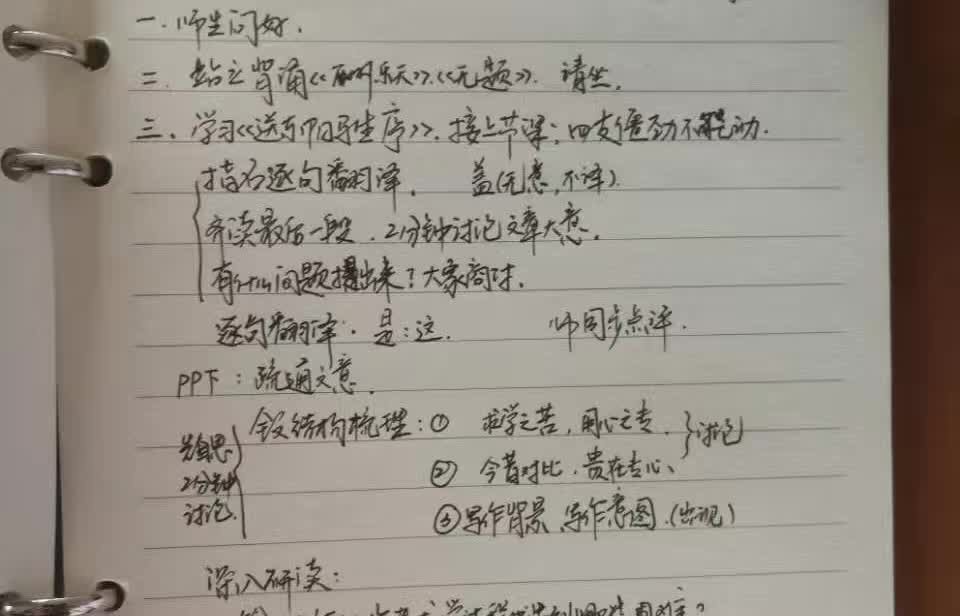 一. 师生问好.
二. 站立背诵《酬乐天》.《无题》. 请坐.
三. 学习《送东阳马生序》. 接上节课: 四支僵劲不能动.
指名逐句翻译. 盖(无意, 不译).
齐读最后一段. 2分钟讨论文章大意.
有什么问题提出来? 大家商讨.
逐句翻译. 是: 这. 师同步点评.
PPT: 疏通文意.
结构梳理: ① 求学之苦, 用心之专. 讨论
先自思
② 今昔对比, 贵在专心.
2分钟
讨论.
③ 写作背景 写作意图. (出现)
深入研读: